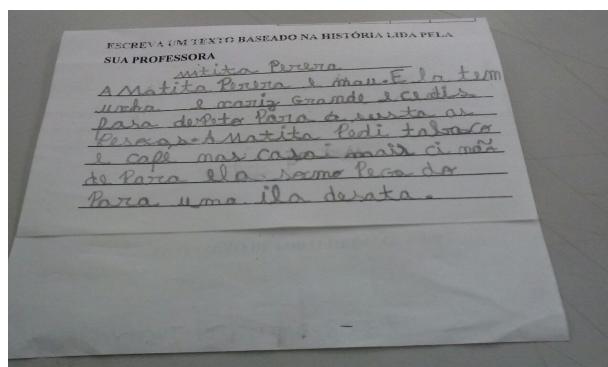 ESCREVA UM TEXTO BASEADO NA HISTÓRIA LIDA PELA
SUA PROFESSORA
Matita Perera
A Matita Perera e mau. E la tem
unha e nariz Grande e ce dis
fasa de Peto Para a susta as
Pesoas. A Matita Pedi tabaco
e café nas casai mais ci não
de Para ela somo Pega do
Para uma ila desata.